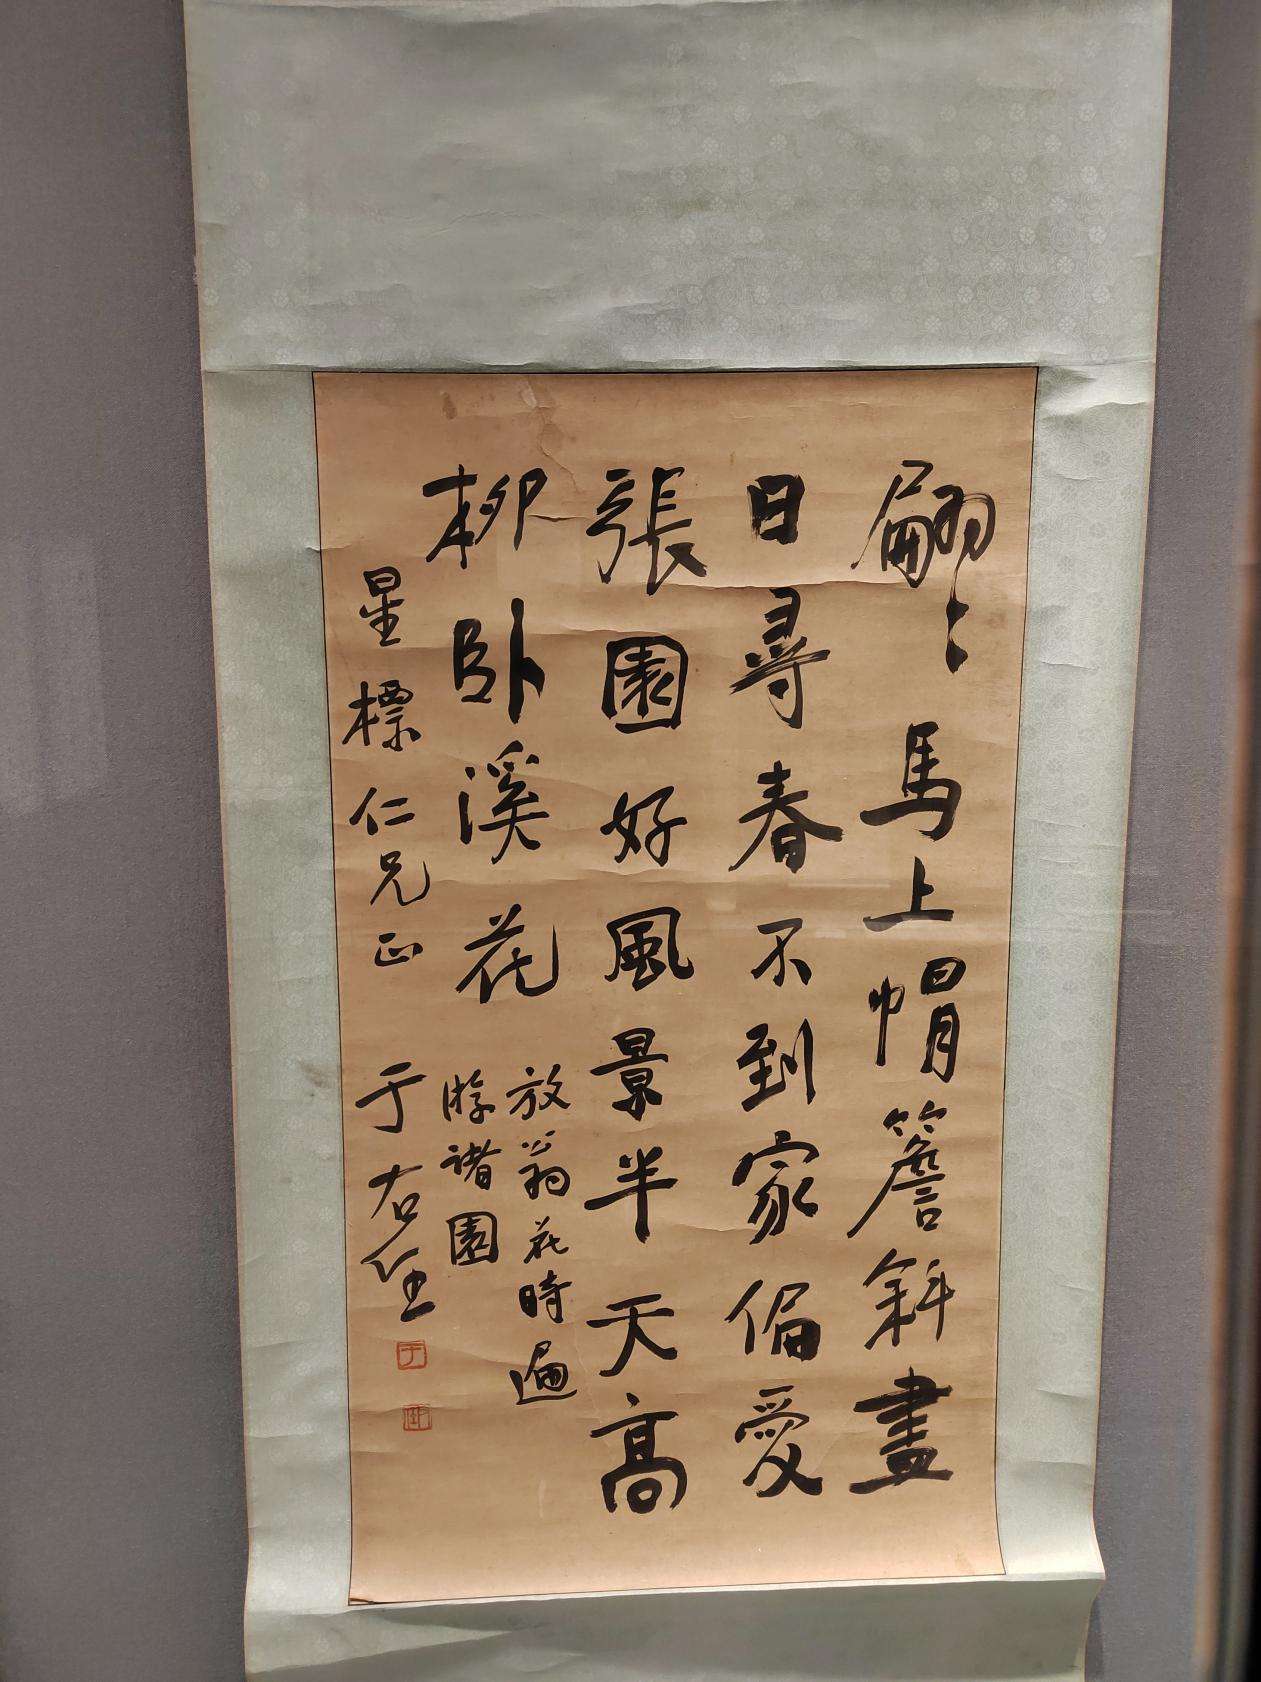 翩〻馬上帽簷斜畫
日尋春不到家偏愛
張園好風景半天高
柳卧溪花
放翁花時遍
游諸園
星標仁兄正
于右任